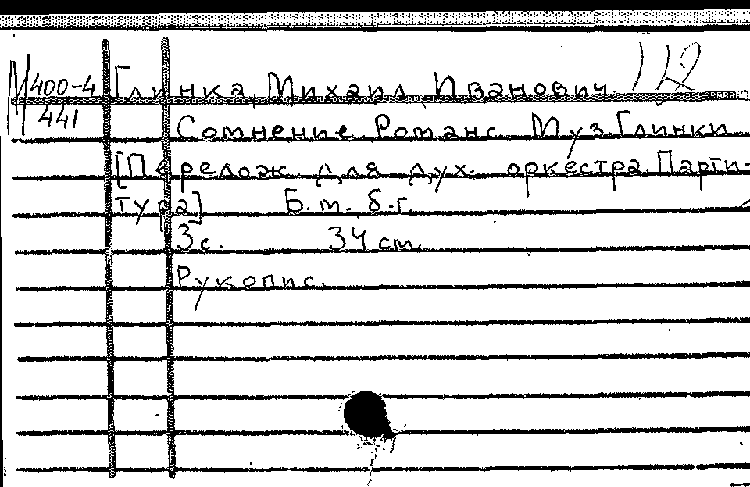 М 400-4 Глинка, Михаил Иванович 112
441
Сомнение. Романс. Муз. Глинки
[Перелож. для дух. оркестра. Парти-
тура] Б.м. б.г.
3 с. 34 см.
Рукопис.